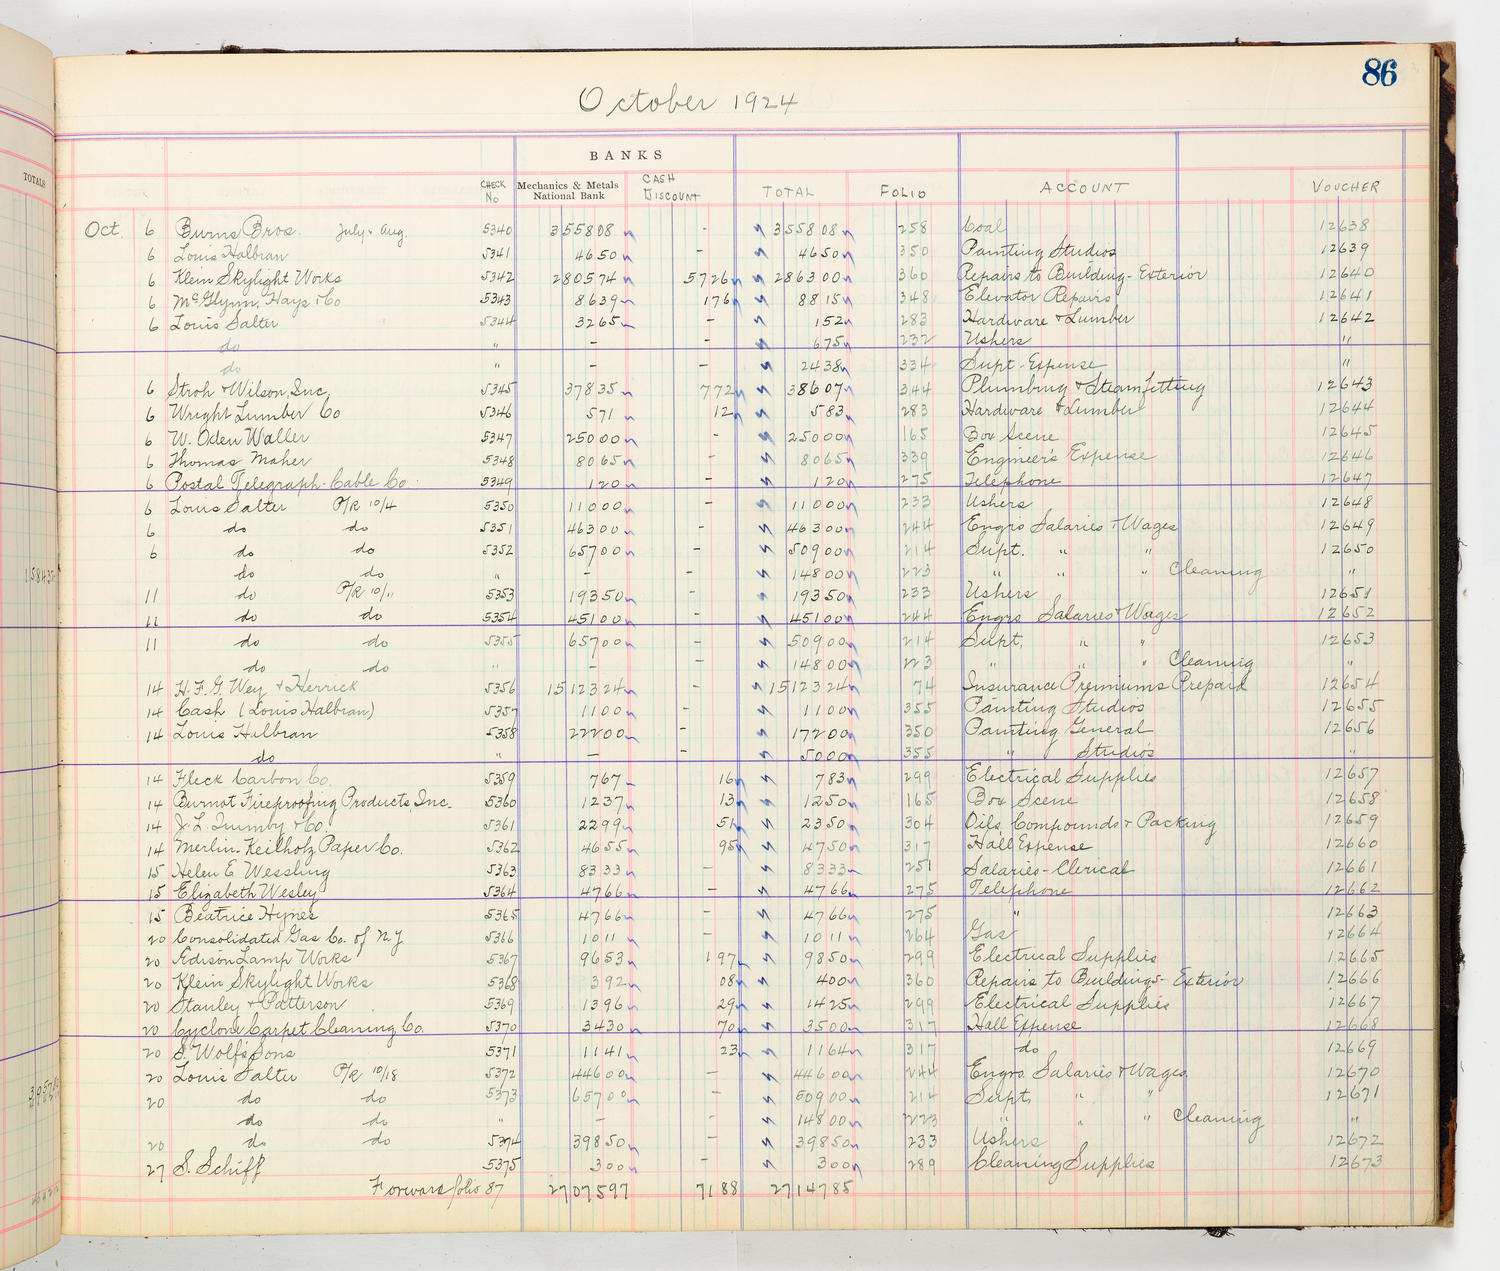 86
October 1924
BANKS
TOTALS
CHECK No Mechanics & Metals National Bank CASH DISCOUNT TOTAL FOLIO ACCOUNT VOUCHER
Oct. 6 Burns Bros. July & Aug. 5340 355808 - 355808 258 Coal 12638
6 Louis Halbran 5341 4650 - 4650 350 Painting Studios 12639
6 Klein Skylight Works 5342 280574 5726 286300 360 Repairs to Building - Exterior 12640
6 McGlynn, Hays & Co 5343 8639 176 8815 348 Elevator Repairs 12641
6 Louis Salter 5344 3265 - 152 283 Hardware & Lumber 12642
do " - - 675 232 Ushers "
do " - - 2438 334 Supt. Expense "
6 Stroh & Wilson, Inc. 5345 37835 772 38607 344 Plumbing & Steamfitting 12643
6 Wright Lumber Co 5346 571 12 583 283 Hardware & Lumber 12644
6 W. Oden Waller 5347 25000 - 25000 165 Box Scene 12645
6 Thomas Maher 5348 8065 - 8065 339 Engineer's Expense 12646
6 Postal Telegraph-Cable Co. 5349 120 - 120 275 Telephone 12647
6 Louis Salter P/R 10/4 5350 11000 - 11000 233 Ushers 12648
6 do do 5351 46300 - 46300 244 Engrs Salaries & Wages 12649
6 do do 5352 65700 - 50900 214 Supt. " " 12650
do do " - - 14800 223 " " " Cleaning "
11 do P/R 10/11 5353 19350 - 19350 233 Ushers 12651
11 do do 5354 45100 - 45100 244 Engrs Salaries & Wages 12652
11 do do 5355 65700 - 50900 214 Supt. " " 12653
do do " - - 14800 223 " " " Cleaning "
14 H. F. G. Wey & Herrick 5356 1512324 - 1512324 74 Insurance Premiums Prepaid 12654
14 Cash (Louis Halbran) 5357 1100 - 1100 355 Painting Studios 12655
14 Louis Halbran 5358 22200 - 17200 350 Painting General 12656
do " - - 5000 355 " Studios "
14 Fleck Carbon Co. 5359 767 16 783 299 Electrical Supplies 12657
14 Burnot Fireproofing Products, Inc. 5360 1237 13 1250 165 Box Scene 12658
14 J. L. Quimby & Co. 5361 2299 51 2350 304 Oils, Compounds & Packing 12659
14 Merlin-Keilholz Paper Co. 5362 4655 95 4750 317 Hall Expense 12660
15 Helen E Wessling 5363 8333 - 8333 251 Salaries-Clerical 12661
15 Elizabeth Wesley 5364 4766 - 4766 275 Telephone 12662
15 Beatrice Hynes 5365 4766 - 4766 275 " 12663
20 Consolidated Gas Co. of N.Y. 5366 1011 - 1011 264 Gas 12664
20 Edison Lamp Works 5367 9653 197 9850 299 Electrical Supplies 12665
20 Klein Skylight Works 5368 392 08 400 360 Repairs to Buildings - Exterior 12666
20 Stanley & Patterson 5369 1396 29 1425 299 Electrical Supplies 12667
20 Cyclone Carpet Cleaning Co. 5370 3430 70 3500 317 Hall Expense 12668
20 S. Wolf's Sons 5371 1141 23 1164 317 do 12669
20 Louis Salter P/R 10/18 5372 44600 - 44600 244 Engrs Salaries & Wages 12670
20 do do 5373 65700 - 50900 214 Supt. " " 12671
do do " - - 14800 223 " " " Cleaning "
20 do do 5374 39850 - 39850 233 Ushers 12672
27 S. Schiff 5375 300 - 300 289 Cleaning Supplies 12673
Forward folio 87 2707597 7188 2714785